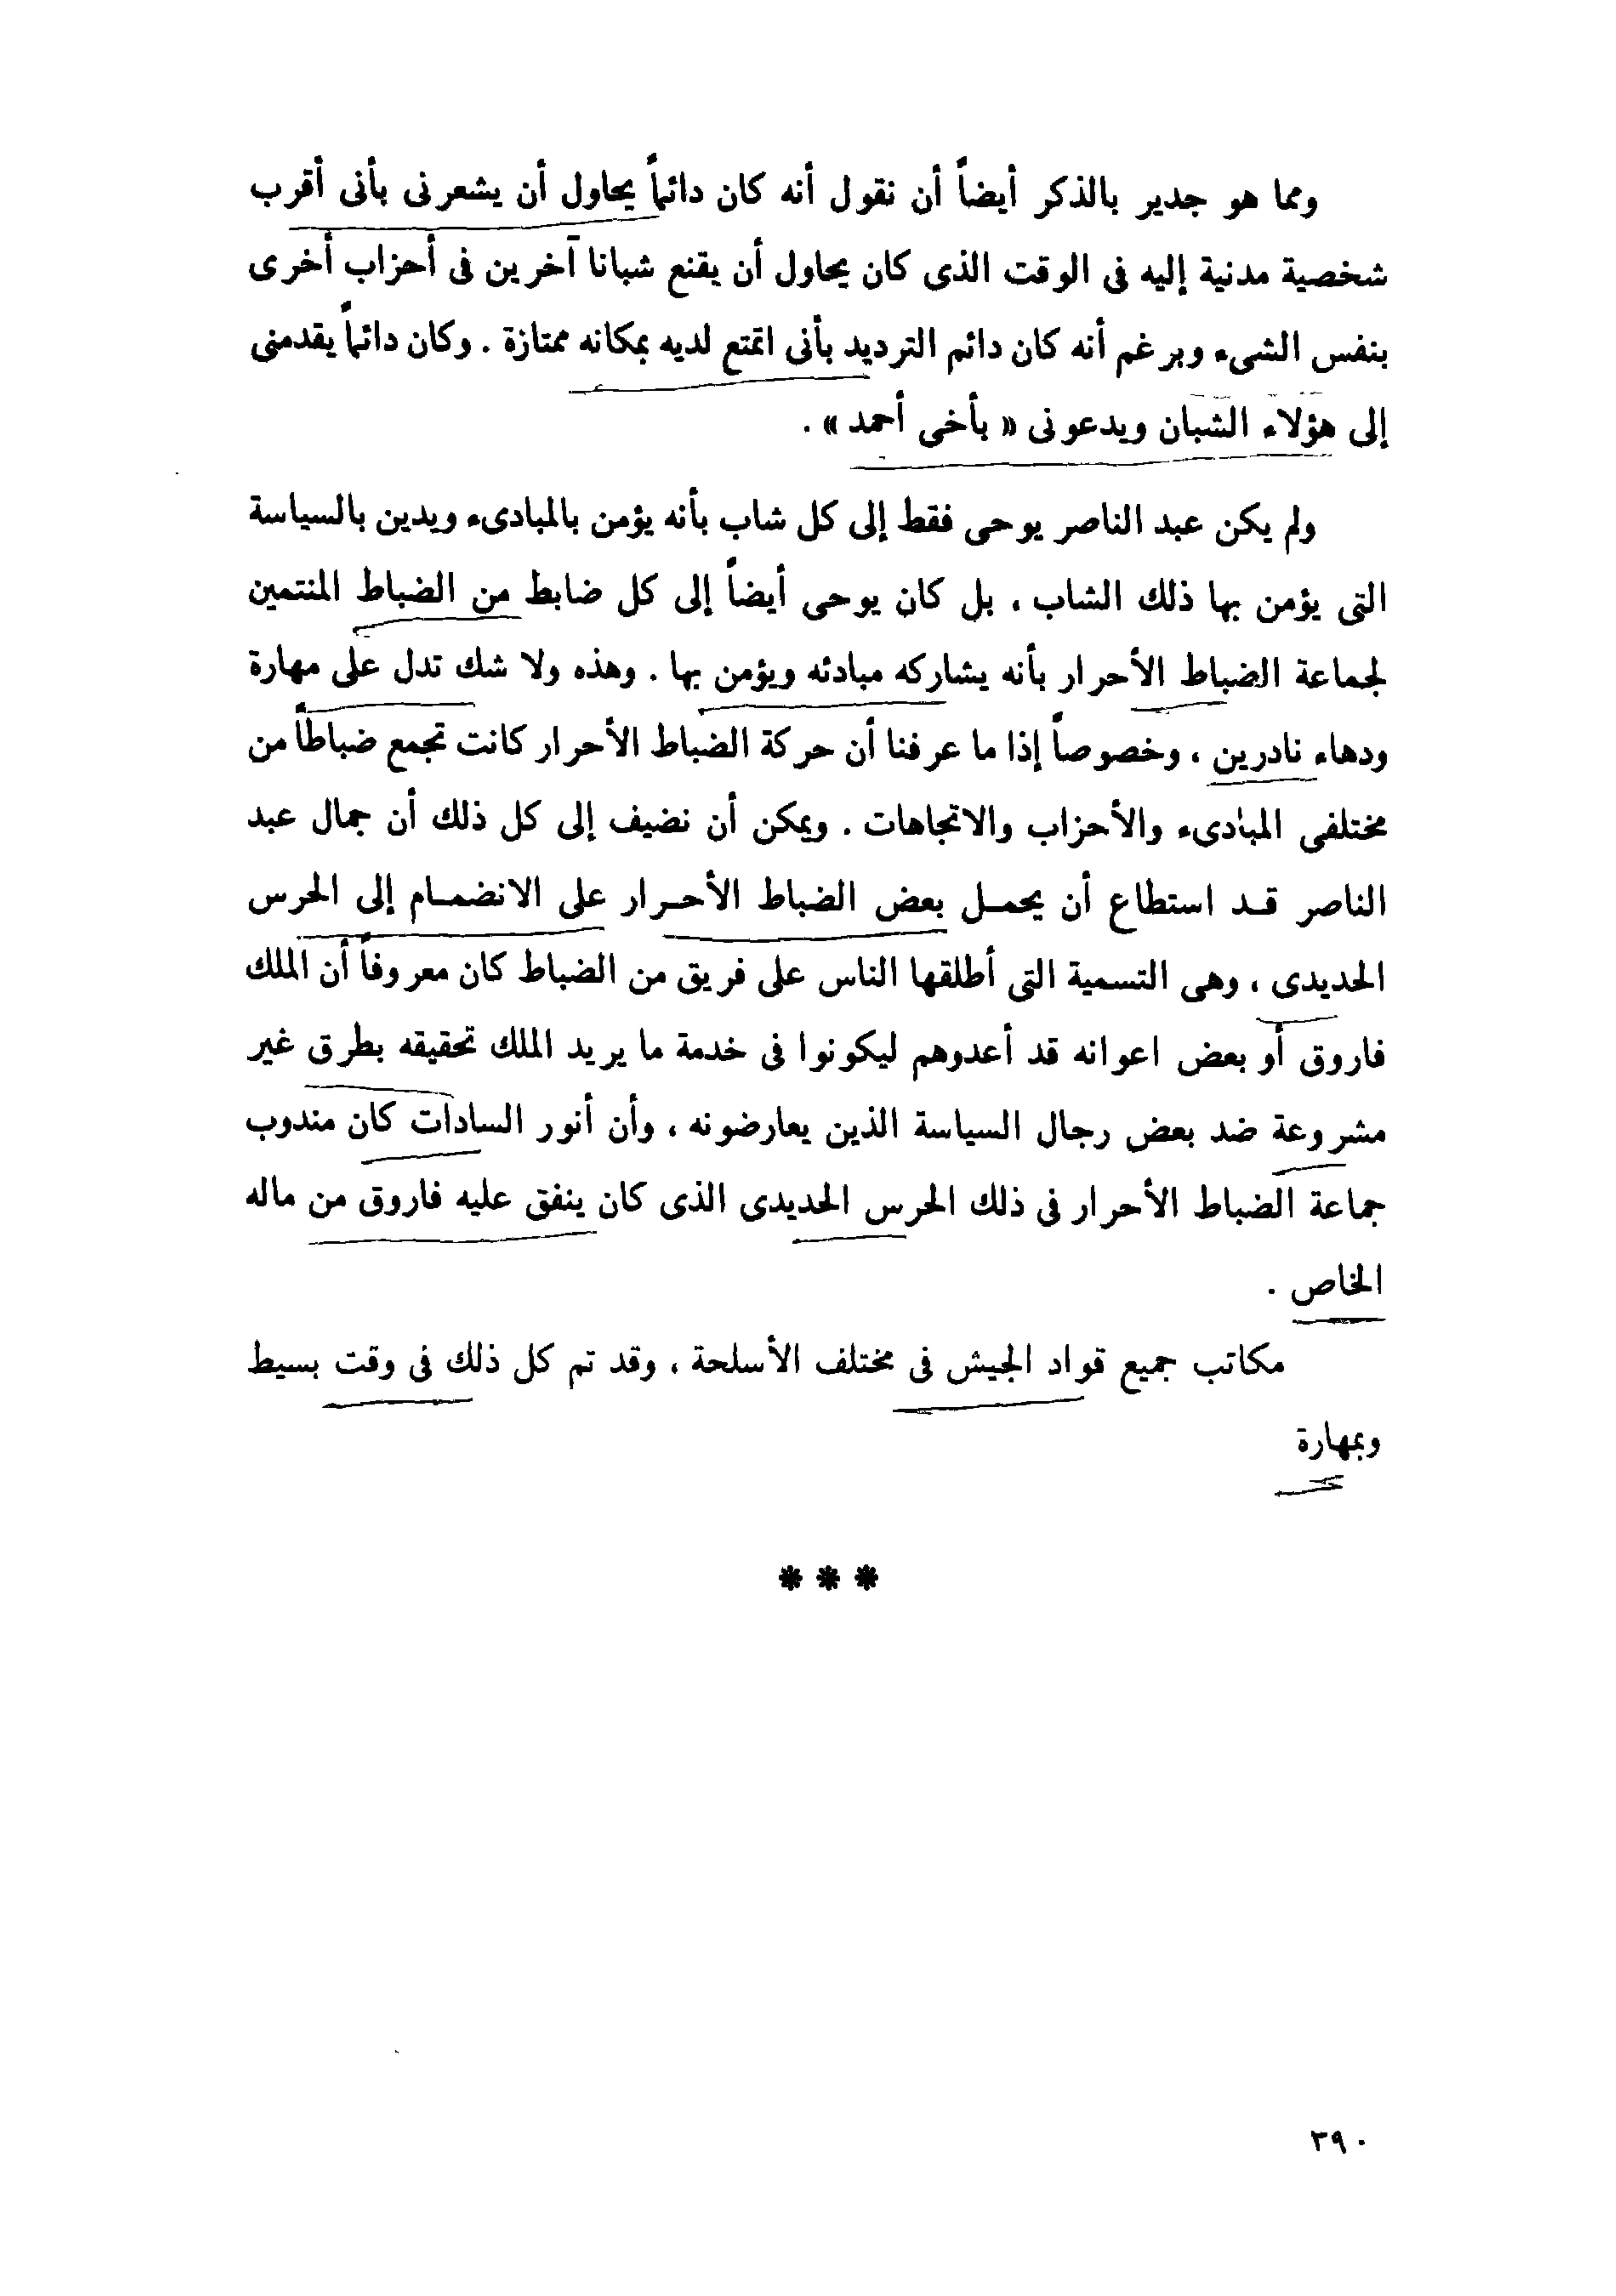 ومما هو جدير بالذكر أيضاً أن نقول أنه كان دائماً يحاول أن يشعرنى بأنى أقرب
شخصية مدنية إليه فى الوقت الذى كان يحاول أن يقنع شبانا آخرين فى أحزاب أخرى
بنفس الشىء وبرغم أنه كان دائم الترديد بأنى اتمتع لديه بمكانه ممتازة . وكان دائماً يقدمنى
إلى هؤلاء الشبان ويدعونى « بأخى أحمد » .
ولم يكن عبد الناصر يوحى فقط إلى كل شاب بأنه يؤمن بالمبادىء ويدين بالسياسة
التى يؤمن بها ذلك الشاب ، بل كان يوحى أيضاً إلى كل ضابط من الضباط المنتمين
لجماعة الضباط الأحرار بأنه يشاركه مبادئه ويؤمن بها . وهذه ولا شك تدل على مهارة
ودهاء نادرين ، وخصوصاً إذا ما عرفنا أن حركة الضباط الأحرار كانت تجمع ضباطاً من
مختلفى المبادىء والأحزاب والاتجاهات . ويمكن أن نضيف إلى كل ذلك أن جمال عبد
الناصر قـد استطاع أن يحمـل بعض الضباط الأحـرار على الانضمـام إلى الحرس
الحديدى ، وهى التسمية التى أطلقها الناس على فريق من الضباط كان معروفاً أن الملك
فاروق أو بعض اعوانه قد أعدوهم ليكونوا فى خدمة ما يريد الملك تحقيقه بطرق غير
مشروعة ضد بعض رجال السياسة الذين يعارضونه ، وأن أنور السادات كان مندوب
جماعة الضباط الأحرار فى ذلك الحرس الحديدى الذى كان ينفق عليه فاروق من ماله
الخاص .
مكاتب جميع قواد الجيش فى مختلف الأسلحة ، وقد تم كل ذلك فى وقت بسيط
وبمهارة
* * *
٣٩٠